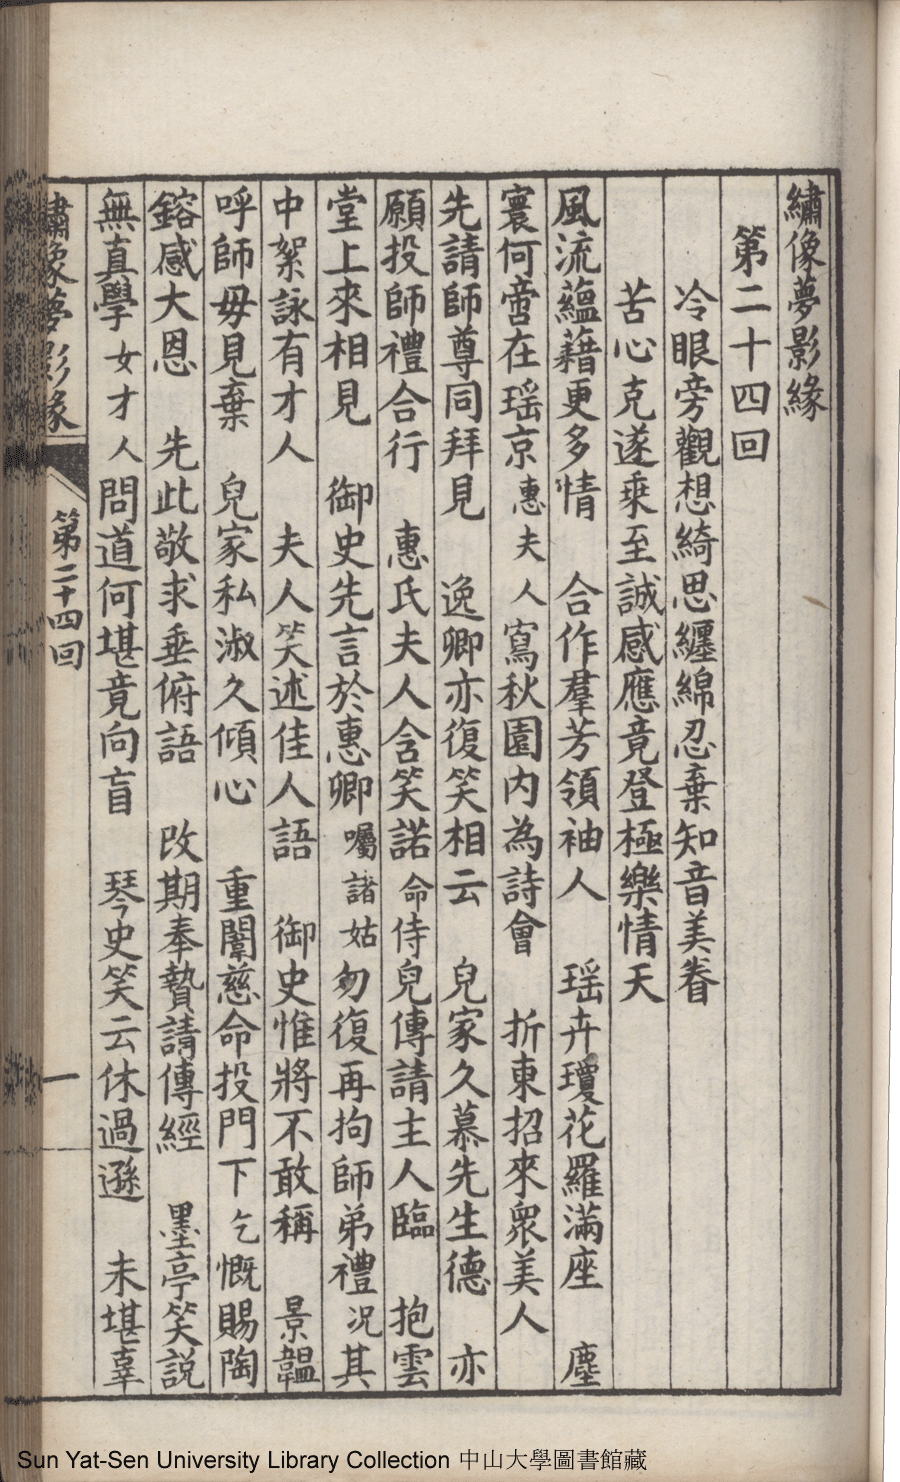 繡像夢影緣
第二十四回
冷眼旁觀想綺思纏綿忍棄知音美眷
苦心克遂乘至誠感應竟登極樂情天
風流蘊藉更多情　合作羣芳領袖人　瑶卉瓊花羅滿座　塵
寰何啻在瑶京惠夫人寫秋園内為詩會　折柬招來衆美人
先請師尊同拜見　逸卿亦復笑相云　兒家久慕先生德　亦
願投師禮合行　惠氏夫人含笑諾命侍兒傳請主人臨　抱雲
堂上來相見　御史先言於惠卿囑諸姑勿復再拘師弟禮况其
中絮詠有才人　夫人笑述佳人語　御史惟將不敢稱　景韞
呼師毋見棄　兒家私淑久傾心　重闈慈命投門下乞慨賜陶
鎔感大恩　先此敬求垂俯語　改期奉贄請傳經　墨亭笑説
無真學女才人問道何堪竟向盲　琴史笑云休過遜　未堪辜
繡像夢影緣　第二十四回　一
Sun Yat-Sen University Library Collection 中山大學圖書館藏